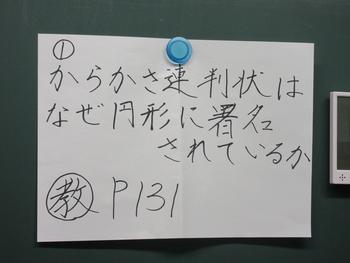 ①
からかさ連判状は
なぜ円形に署名
されているか
教 P131